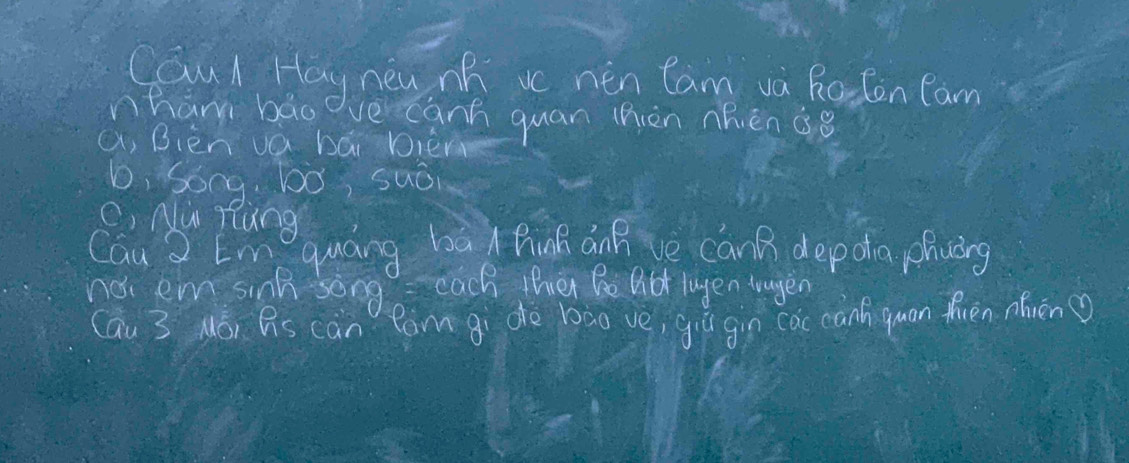 Câu 1 Hãy nêu nh vc nên làm và ko lên làm
nhằm bảo vệ cảnh quan thiên nhiên ở :
a, Biển và bãi biển
b, Sông, bờ, suối
c, Núi rừng
Câu 2 Em quảng bá 1 hình ảnh về cảnh đẹp địa phương
nơi em sinh sống = cách thiết kế
Câu 3 Mỗi hs cần làm gì để bảo vệ, giữ gìn các cảnh quan thiên nhiên